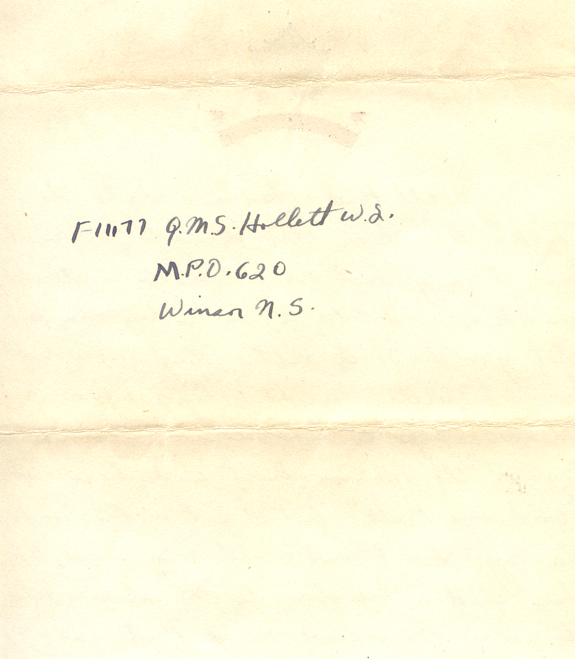 F11177 Q.M.S. Hollett W.L.
M.P.O. 620
Winsor N.S.